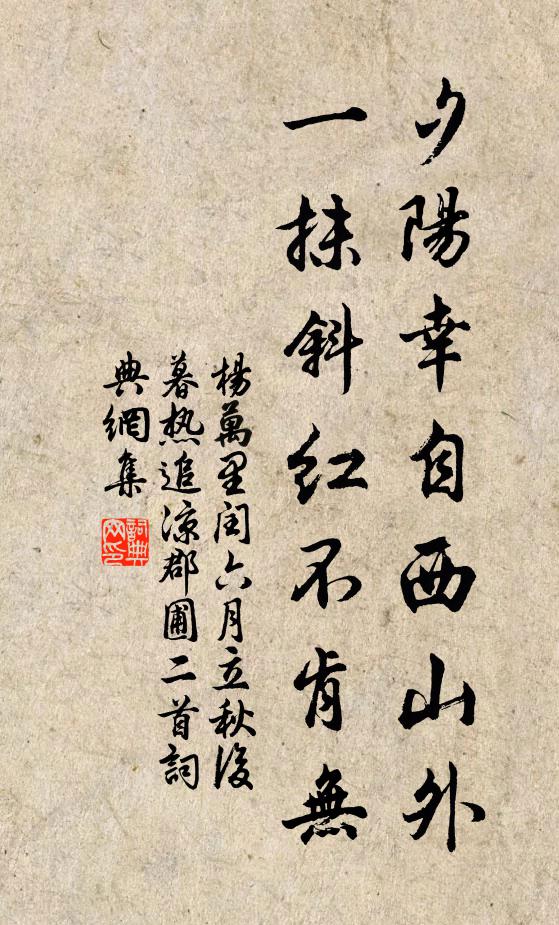 夕陽幸自西山外
一抹斜紅不肯無
楊萬里閏六月立秋後
暮热追涼郡圃二首詞
典網集
詞典
网印